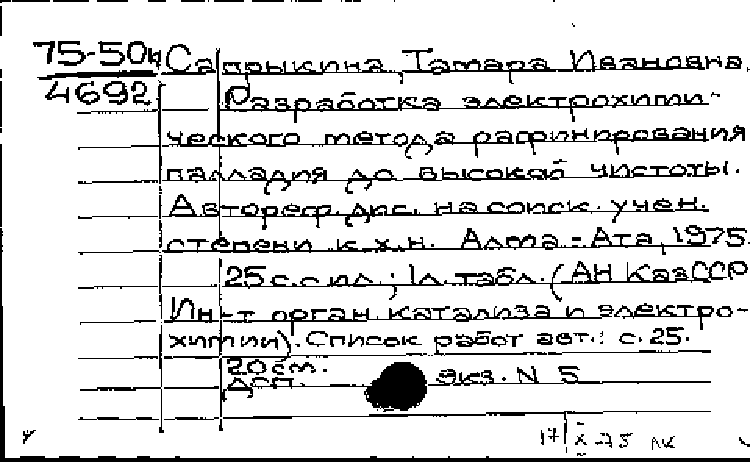 75-50к Сапрыкина, Тамара Ивановна.
4692 Разработка электрохими-
ческого метода рафинирования
палладия до высокой чистоты.
Автореф. дис. на соиск. учен.
степени к.х.н. Алма-Ата, 1975.
25 с. с ил.; 1 л. табл. (АН КазССР
Ин-т орган. катализа и электро-
химии). Список работ авт.: с. 25.
20 см.
ДСП. экз. N 5
17 X 75